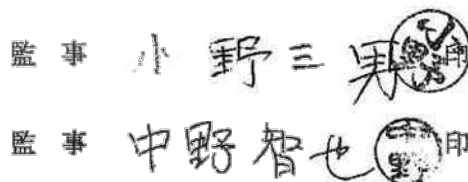 監事 小野三男 印
監事 中野智也 印